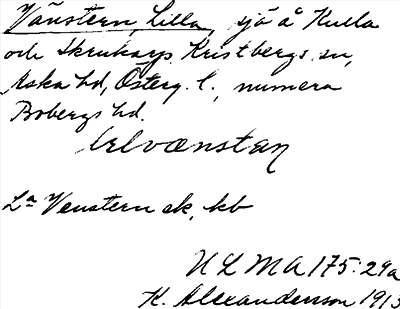 Vänstern, Lilla, sjö å Kulla
och Skrukarps. Kristbergs sn,
Aska hd, Österg. l., numera
Bobergs hd.
lɛlvænstan
La Venstern ek, kb
ULMA 175:29a
K. Alexanderson 1913